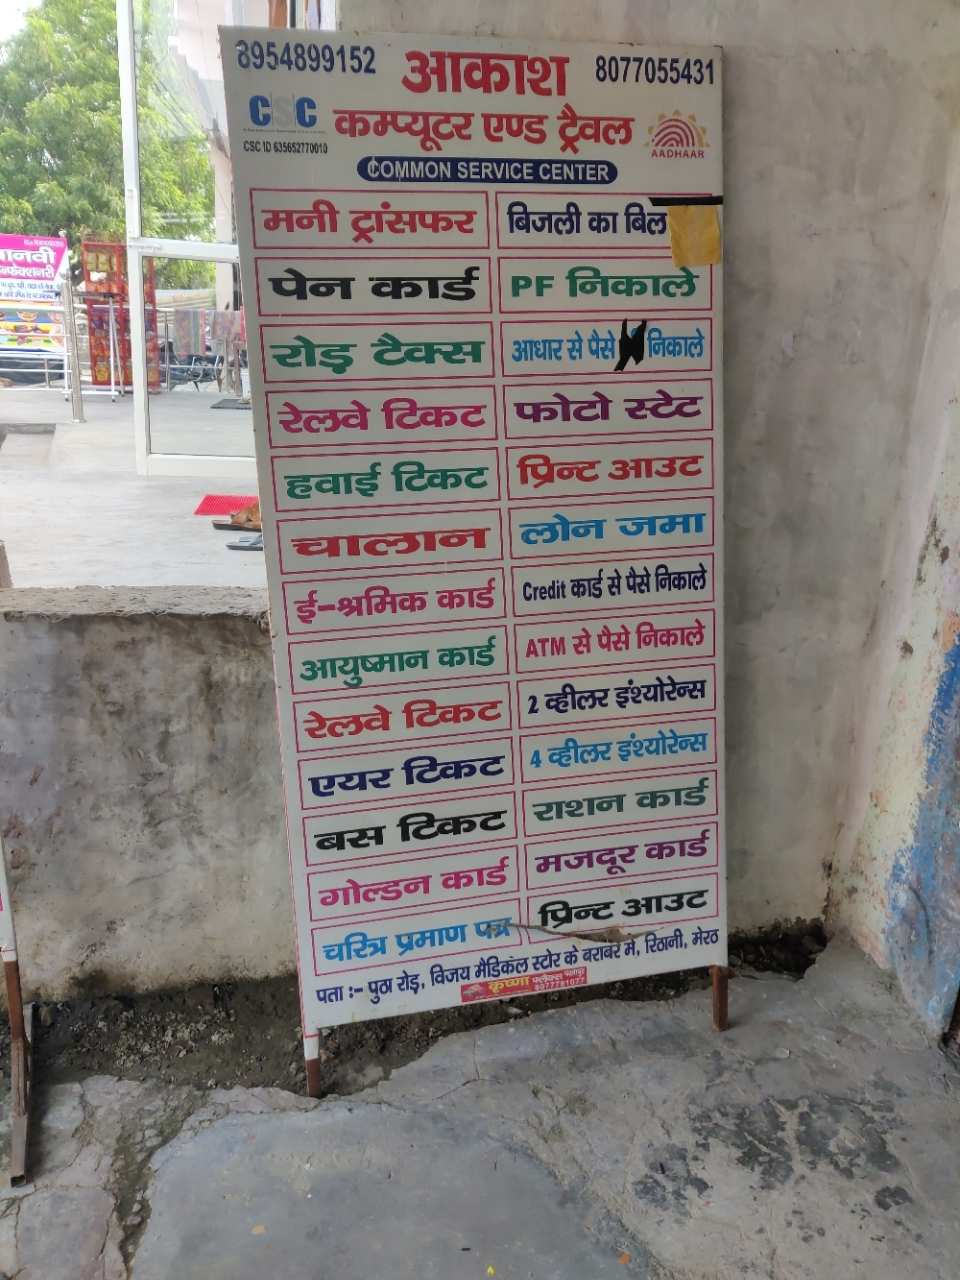 8954899152
आकाश
8077055431
CSC
कम्प्यूटर एण्ड ट्रैवल
AADHAAR
CSC ID 635652770010
COMMON SERVICE CENTER
मनी ट्रांसफर
बिजली का बिल
पेन कार्ड
PF निकाले
रोड़ टैक्स
आधार से पैसे निकाले
रेलवे टिकट
फोटो स्टेट
हवाई टिकट
प्रिन्ट आउट
चालान
लोन जमा
ई-श्रमिक कार्ड
Credit कार्ड से पैसे निकाले
आयुष्मान कार्ड
ATM से पैसे निकाले
रेलवे टिकट
2 व्हीलर इंश्योरेन्स
एयर टिकट
4 व्हीलर इंश्योरेन्स
बस टिकट
राशन कार्ड
गोल्डन कार्ड
मजदूर कार्ड
चरित्र प्रमाण पत्र
प्रिन्ट आउट
पता :- पुठा रोड़, विजय मैडिकल स्टोर के बराबर मे, रिठानी, मेरठ
कृष्णा फ्लैक्स